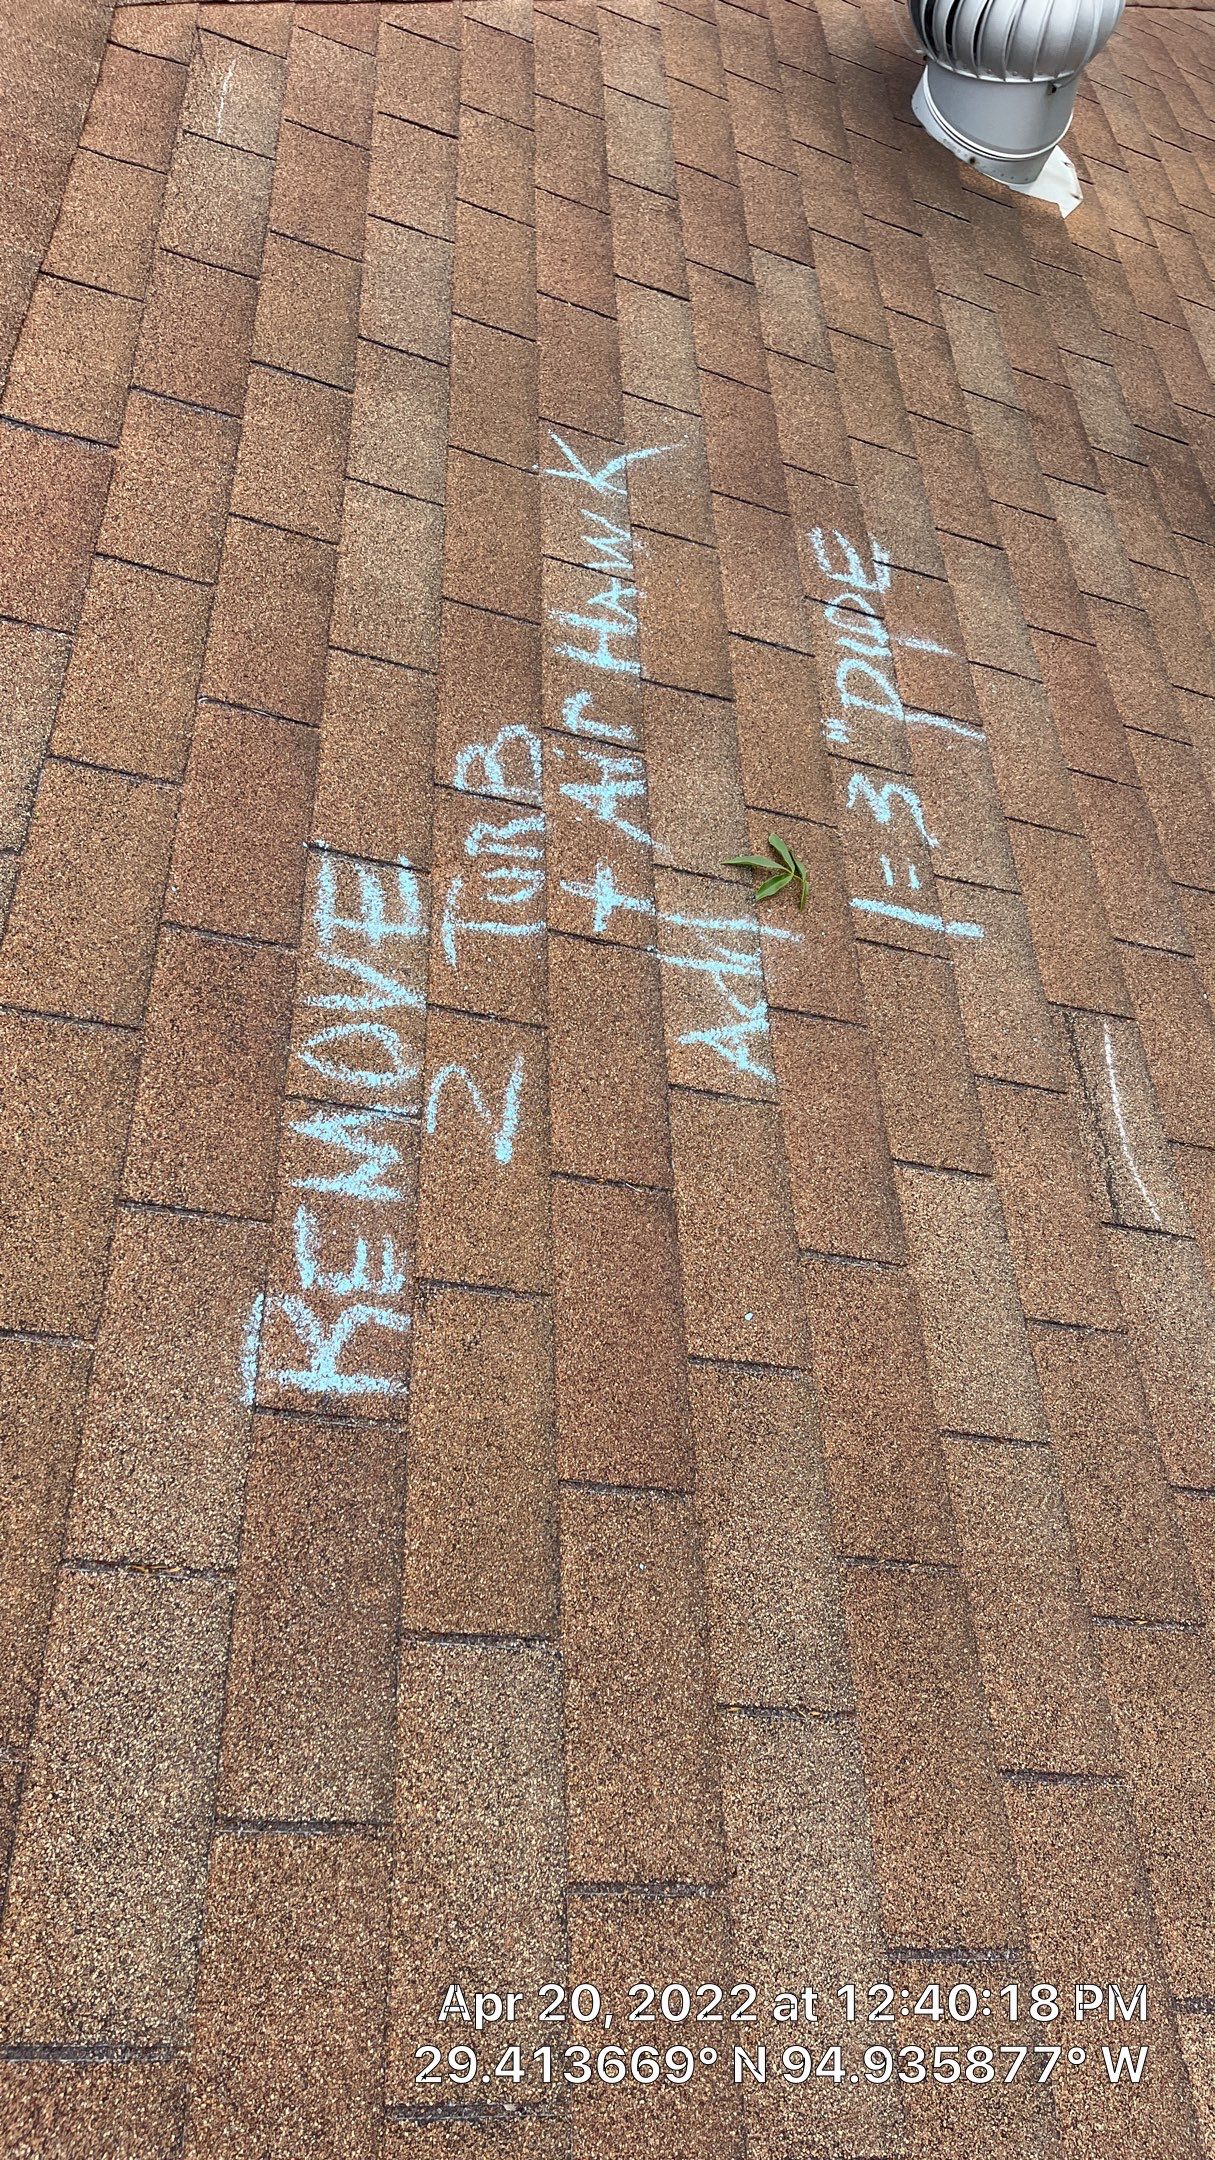 REMOVE
2 TURB
+ Air HAWK
Add
1 = 3" PIPE
Apr 20, 2022 at 12:40:18 PM
29.413669° N 94.935877° W